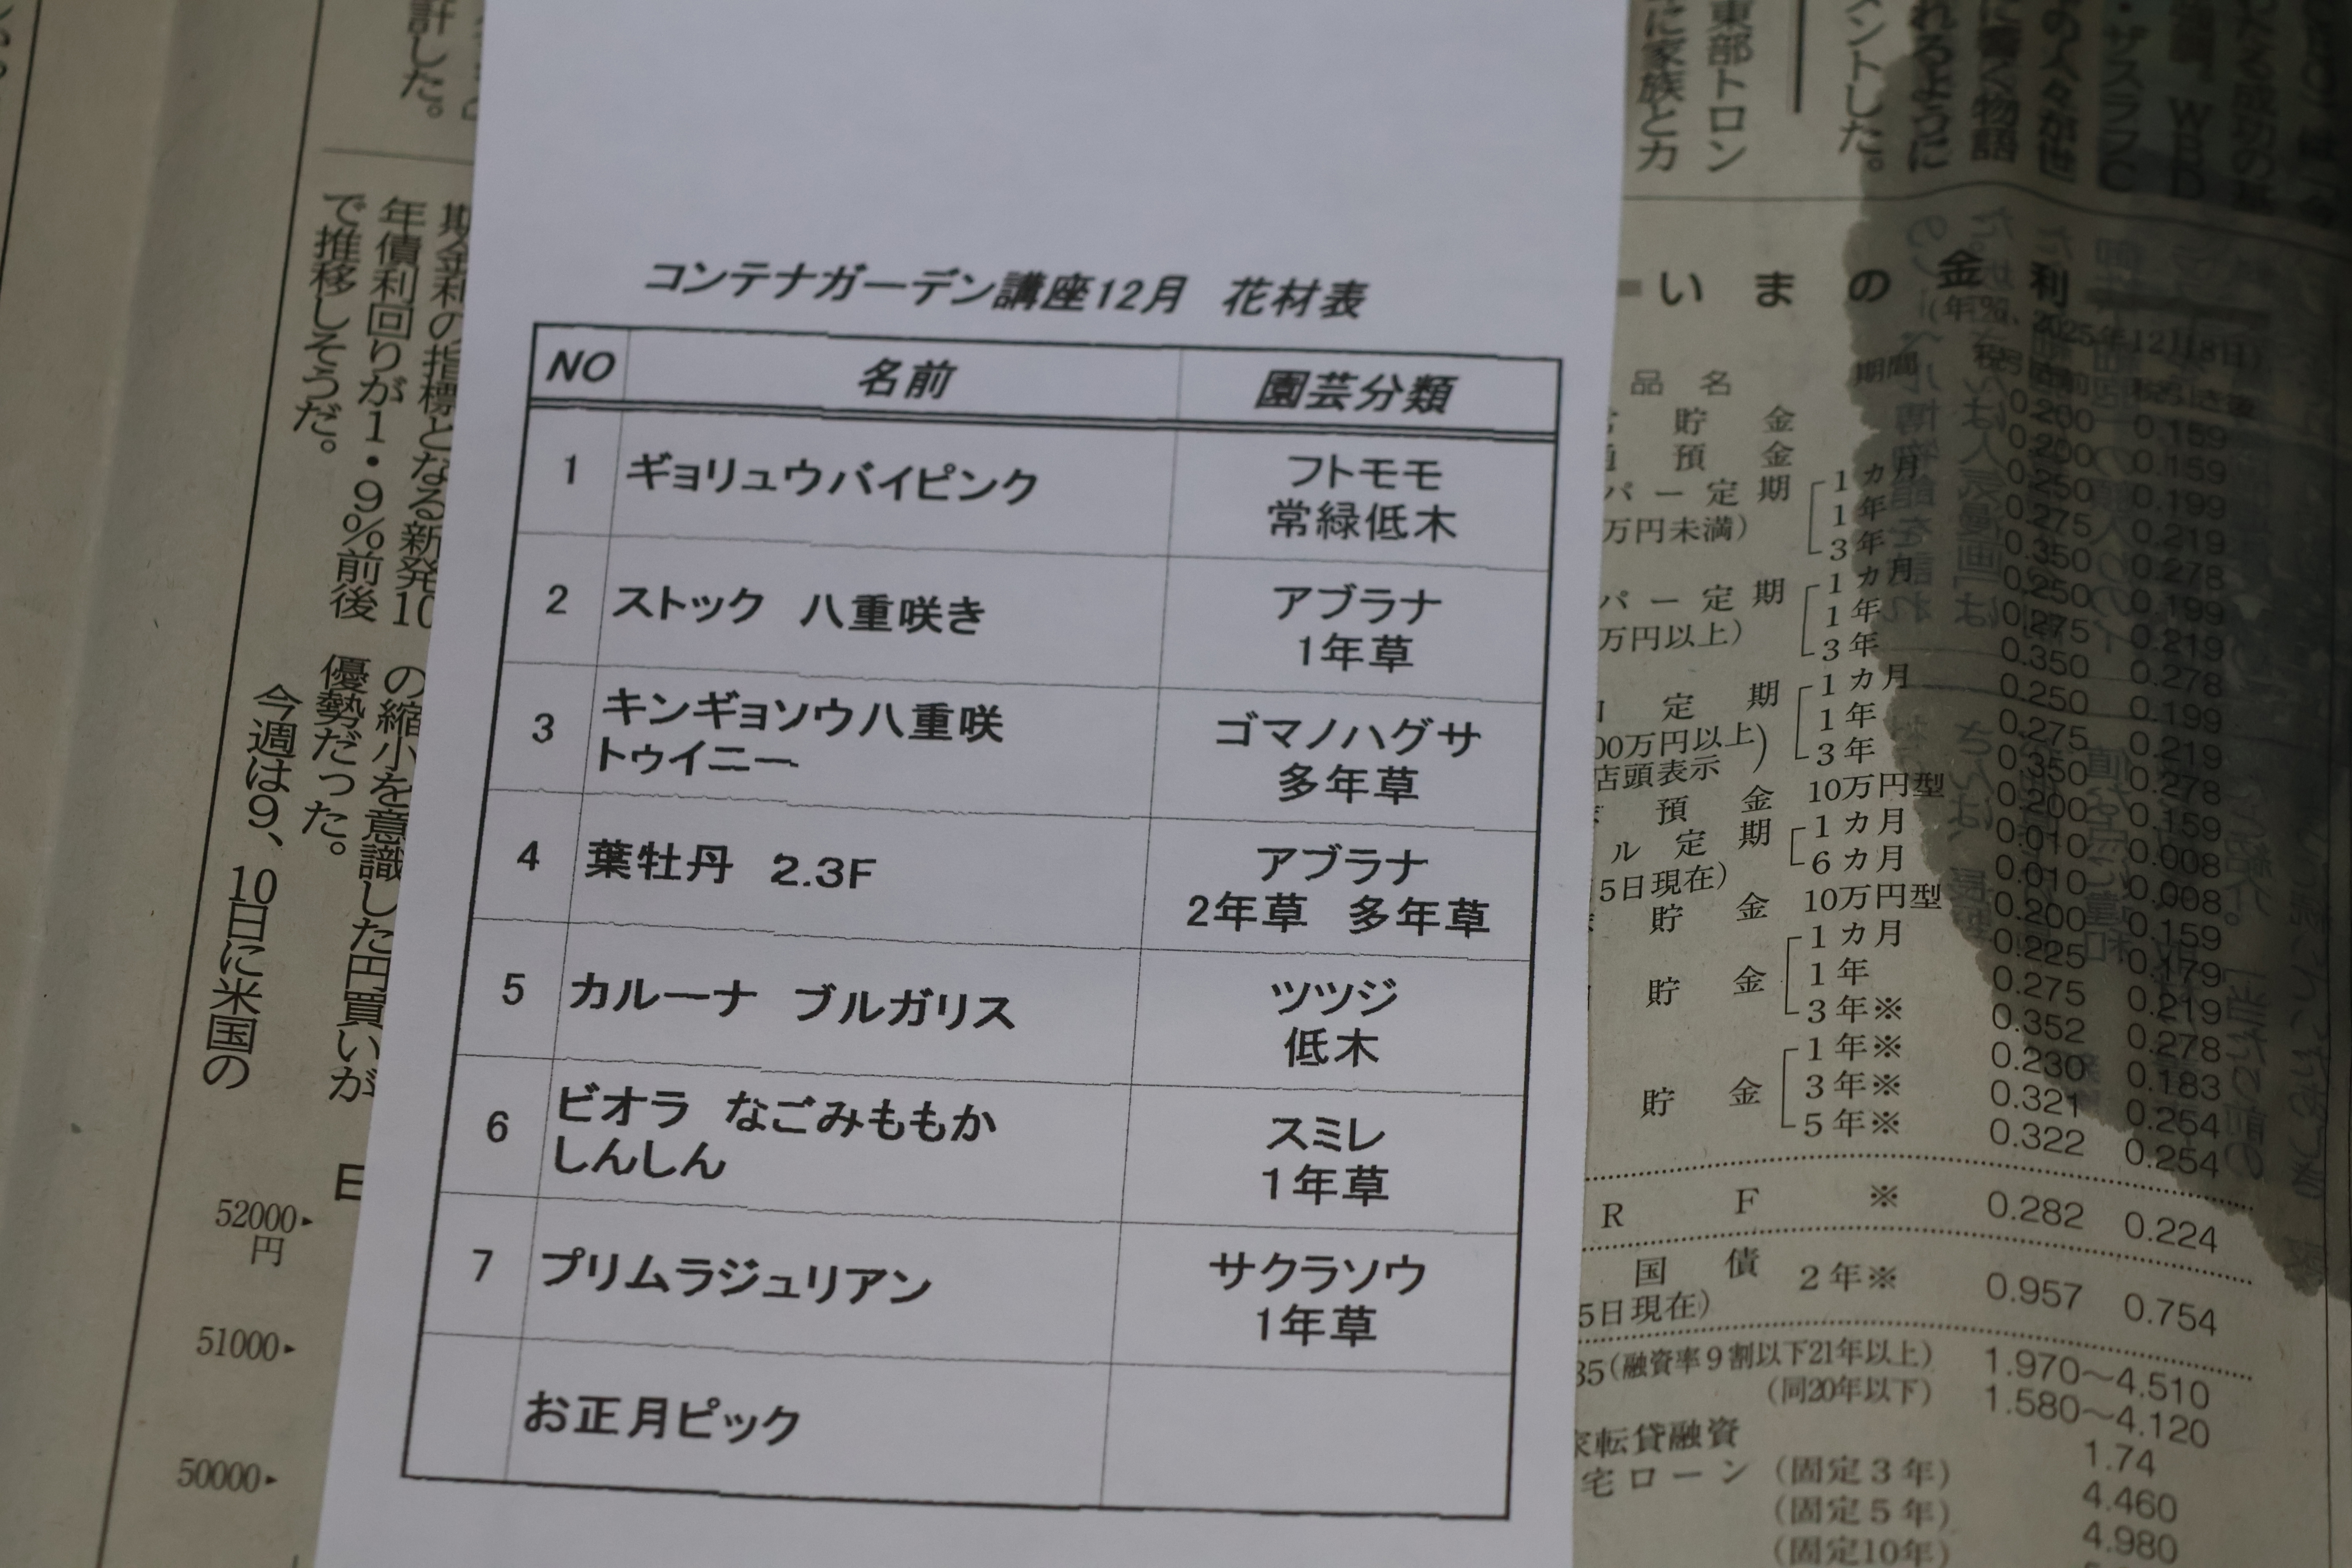 計した。
期金利の指標となる新発10
年債利回りが1・9%前後
で推移しそうだ。
の縮小を意識した円買いが
優勢だった。
今週は9、10日に米国の
52000
円
51000
50000
コンテナガーデン講座12月 花材表
NO 名前 園芸分類
1 ギョリュウバイピンク フトモモ
常緑低木
2 ストック 八重咲き アブラナ
1年草
3 キンギョソウ八重咲 ゴマノハグサ
トゥイニー 多年草
4 葉牡丹 2.3F アブラナ
2年草 多年草
5 カルーナ ブルガリス ツツジ
低木
6 ビオラ なごみももか スミレ
しんしん 1年草
7 プリムラジュリアン サクラソウ
1年草
お正月ピック
東部トロン
に家族とカ
ントした。
れるように
いまの金利
(年%、2025年12月8日)
品名 期間 税引き前 税引き後
貯金 0.200 0.159
預金 0.200 0.159
パー定期 1カ月 0.250 0.199
万円未満) 1年 0.275 0.219
3年 0.350 0.278
パー定期 1カ月 0.250 0.199
万円以上) 1年 0.275 0.219
3年 0.350 0.278
定期 1カ月 0.250 0.199
00万円以上) 1年 0.275 0.219
店頭表示 3年 0.350 0.278
預金 10万円型 0.200 0.159
ル定期 1カ月 0.010 0.008
5日現在) 6カ月 0.010 0.008
貯金 10万円型 0.200 0.159
貯金 1カ月 0.225 0.179
1年 0.275 0.219
3年※ 0.352 0.278
貯金 1年※ 0.230 0.183
3年※ 0.321 0.254
5年※ 0.322 0.254
RF ※ 0.282 0.224
国債 2年※ 0.957 0.754
5日現在)
35(融資率9割以下21年以上) 1.970～4.510
(同20年以下) 1.580～4.120
転貸融資 1.74
宅ローン (固定3年) 4.460
(固定5年) 4.980
(固定10年)